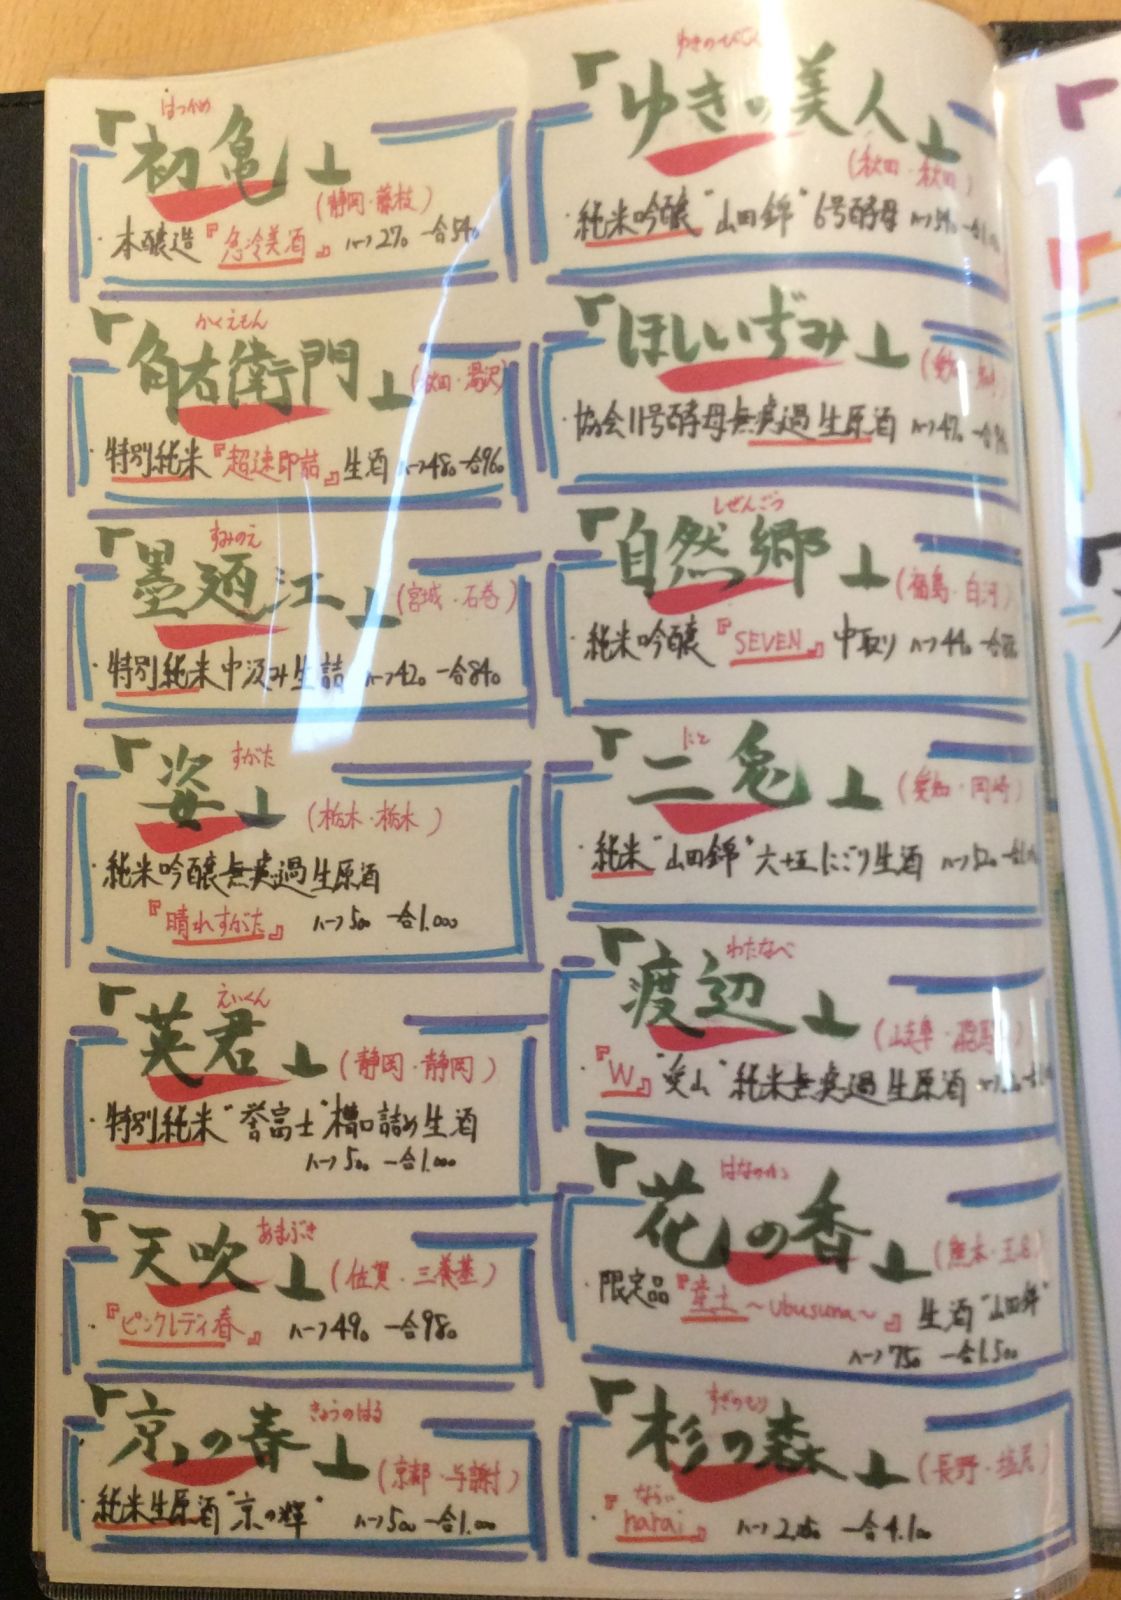 はつかめ
『初亀』
(静岡・藤枝)
・本醸造『急冷美酒』ハーフ270 一合540
かくえもん
『角右衛門』
(秋田・湯沢)
・特別純米『超速即詰』生酒 ハーフ480 一合960
すみのえ
『墨廼江』
(宮城・石巻)
・特別純米中汲み生詰 ハーフ420 一合840
すがた
『姿』
(栃木・栃木)
・純米吟醸無炭過生原酒
『晴れすがた』 ハーフ500 一合1.000
えいくん
『英君』
(静岡・静岡)
・特別純米"誉富士"槽口詰め生酒
ハーフ500 一合1.000
あまぶき
『天吹』
(佐賀・三養基)
・『ピンクレディ春』 ハーフ490 一合980
きょうのはる
『京の春』
(京都・与謝)
・純米生原酒"京の輝" ハーフ500 一合1.000
ゆきのびじん
『ゆきの美人』
(秋田・秋田)
・純米吟醸"山田錦"6号酵母 ハーフ540
『ほしいずみ』
・協会11号酵母無炭過生原酒 ハーフ470
しぜんごう
『自然郷』
(福島・白河)
・純米吟醸『SEVEN』中取り ハーフ440 一合880
にと
『二兎』
(愛知・岡崎)
・純米"山田錦"六十五にごり生酒 ハーフ520
わたなべ
『渡辺』
(岐阜・飛騨)
・『W』"愛山"純米無炭過生原酒
はなのか
『花の香』
(熊本・玉名)
・限定品『産土〜ubusuna〜』生酒"山田錦"
ハーフ750 一合1.500
すぎのもり
『杉の森』
(長野・塩尻)
ならい
・『narai』 ハーフ2.050 一合4.100